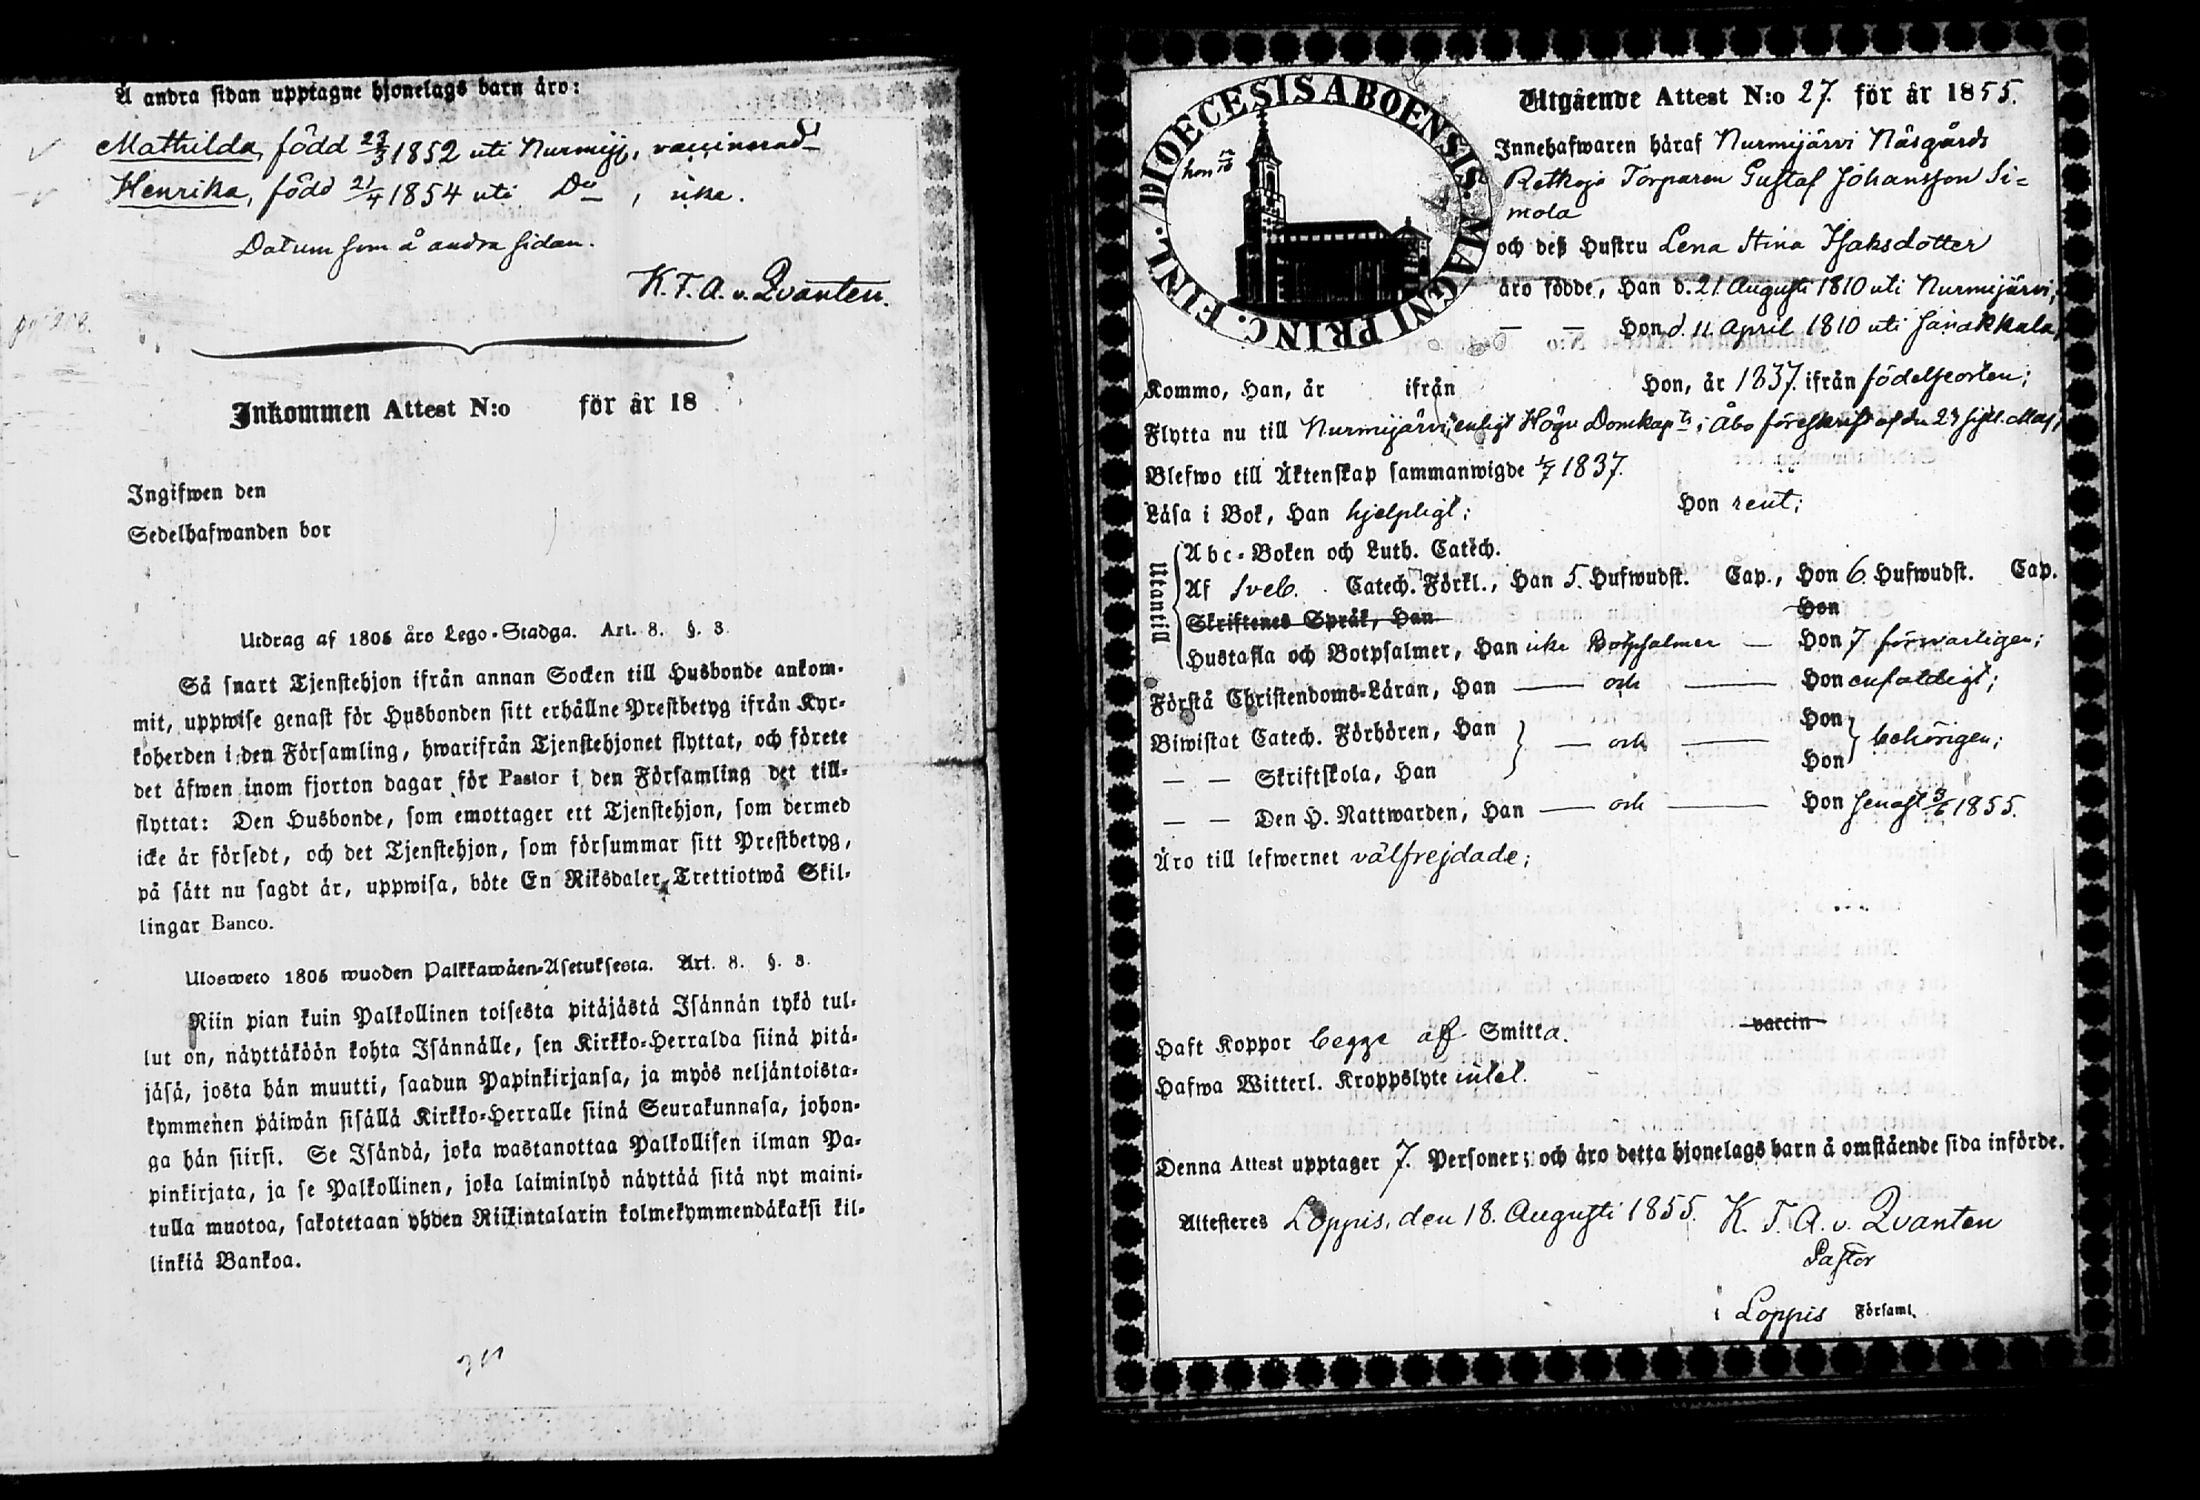 Å andra sidan upptagne hjonelags barn äro:
Mathilda, född 23/3 1852 uti Nurmijj, vaccinerad
Henrika, född 21/4 1854 uti Do, icke.
Datum som å andra sidan.
K. T. A. v. Qvanten.
Inkommen Attest N:o för år 18
Ingifwen den
Sedelhafwanden bor
Utdrag af 1805 års Lego-Stadga. Art. 8. §. 3.
Så snart Tjenstehjon ifrån annan Socken till Husbonde ankom-
mit, uppwise genast för Husbonden sitt erhållne Prestbetyg ifrån Kyr-
koherden i den Församling, hwarifrån Tjenstehjonet flyttat, och förete
det äfwen inom fjorton dagar för Pastor i den Församling det till-
flyttat: Den Husbonde, som emottager ett Tjenstehjon, som dermed
icke är försedt, och det Tjenstehjon, som försummar sitt Prestbetyg,
på sätt nu sagdt är, uppwisa, böte En Riksdaler Trettiotwå Skil-
lingar Banco.
Ulosweto 1805 wuoden Palkkawäen-Asetuksesta. Art. 8. §. 3.
Niin pian kuin Palkollinen toisesta pitäjästä Isännän tykö tul-
lut on, näyttäköön kohta Isännälle, sen Kirkko-Herralda siinä pitä-
jäsä, josta hän muutti, saadun Papinkirjansa, ja myös neljäntoista-
kymmenen päiwän sisällä Kirkko-Herralle siinä Seurakunnasa, johon-
ga hän siirsi. Se Isändä, joka wastanottaa Palkollisen ilman Pa-
pinkirjata, ja se Palkollinen, joka laiminlyö näyttää sitä nyt maini-
tulla muotoa, sakotetaan yhden Riikintalarin kolmekymmendäkaksi kil-
linkiä Bankoa.
DIOECESIS ABOENSIS. MAGNI PRINC. FINL.
Utgående Attest N:o 27. för år 1855.
Innehafwaren häraf Nurmijärvi Näsgårds
Retkoja Torparen Gustaf Johansson Si=
mola
och deß Hustru Lena Stina Isaksdotter
äro födde, Han d. 21 Augusti 1810 uti Nurmijärvi;
— — Hon d. 11 April 1810 uti Janakkala;
Kommo, Han, år ifrån Hon, år 1837. ifrån födelseorten;
Flytta nu till Nurmijärvi, enligt Högv Domkap:ts i Åbo föreskrift af den 29 sistl. Maj;
Blefwo till Äktenskap sammanwigde 1/7 1837.
Läsa i Bok, Han hjelpligt; Hon rent;
Utantill
Abc-Boken och Luth. Catech.
Af Sveb. Catech. Förkl., Han 5. Hufwudst. Cap., Hon 6. Hufwudst. Cap.
Skriftenes Språk, Han Hon
Hustafla och Botpsalmer, Han icke Botpsalmer — Hon 7 försvarligen;
Förstå Christendoms-Läran, Han — och — Hon enfaldigt;
Biwistat Catech. Förhören, Han — och — Hon behörigen;
— — Skriftskola, Han Hon
— — Den H. Nattwarden, Han — och — Hon senast 3/6 1855.
Äro till lefwernet välfrejdade;
Haft Koppor begge af Smitta. vaccin
Hafwa Witterl. Kroppslyte intet.
Denna Attest upptager 7. Personer; och äro detta hjonelags barn å omstående sida införde.
Attesteres Loppis, den 18. Augusti 1855. K. T. A. v. Qvanten
Pastor
i Loppis Församl.